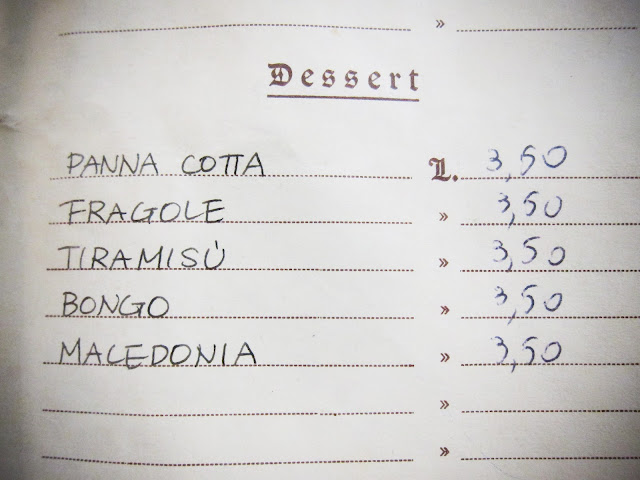 »
Dessert
PANNA COTTA L. 3,50
FRAGOLE » 3,50
TIRAMISÙ » 3,50
BONGO » 3,50
MACEDONIA » 3,50
»
»